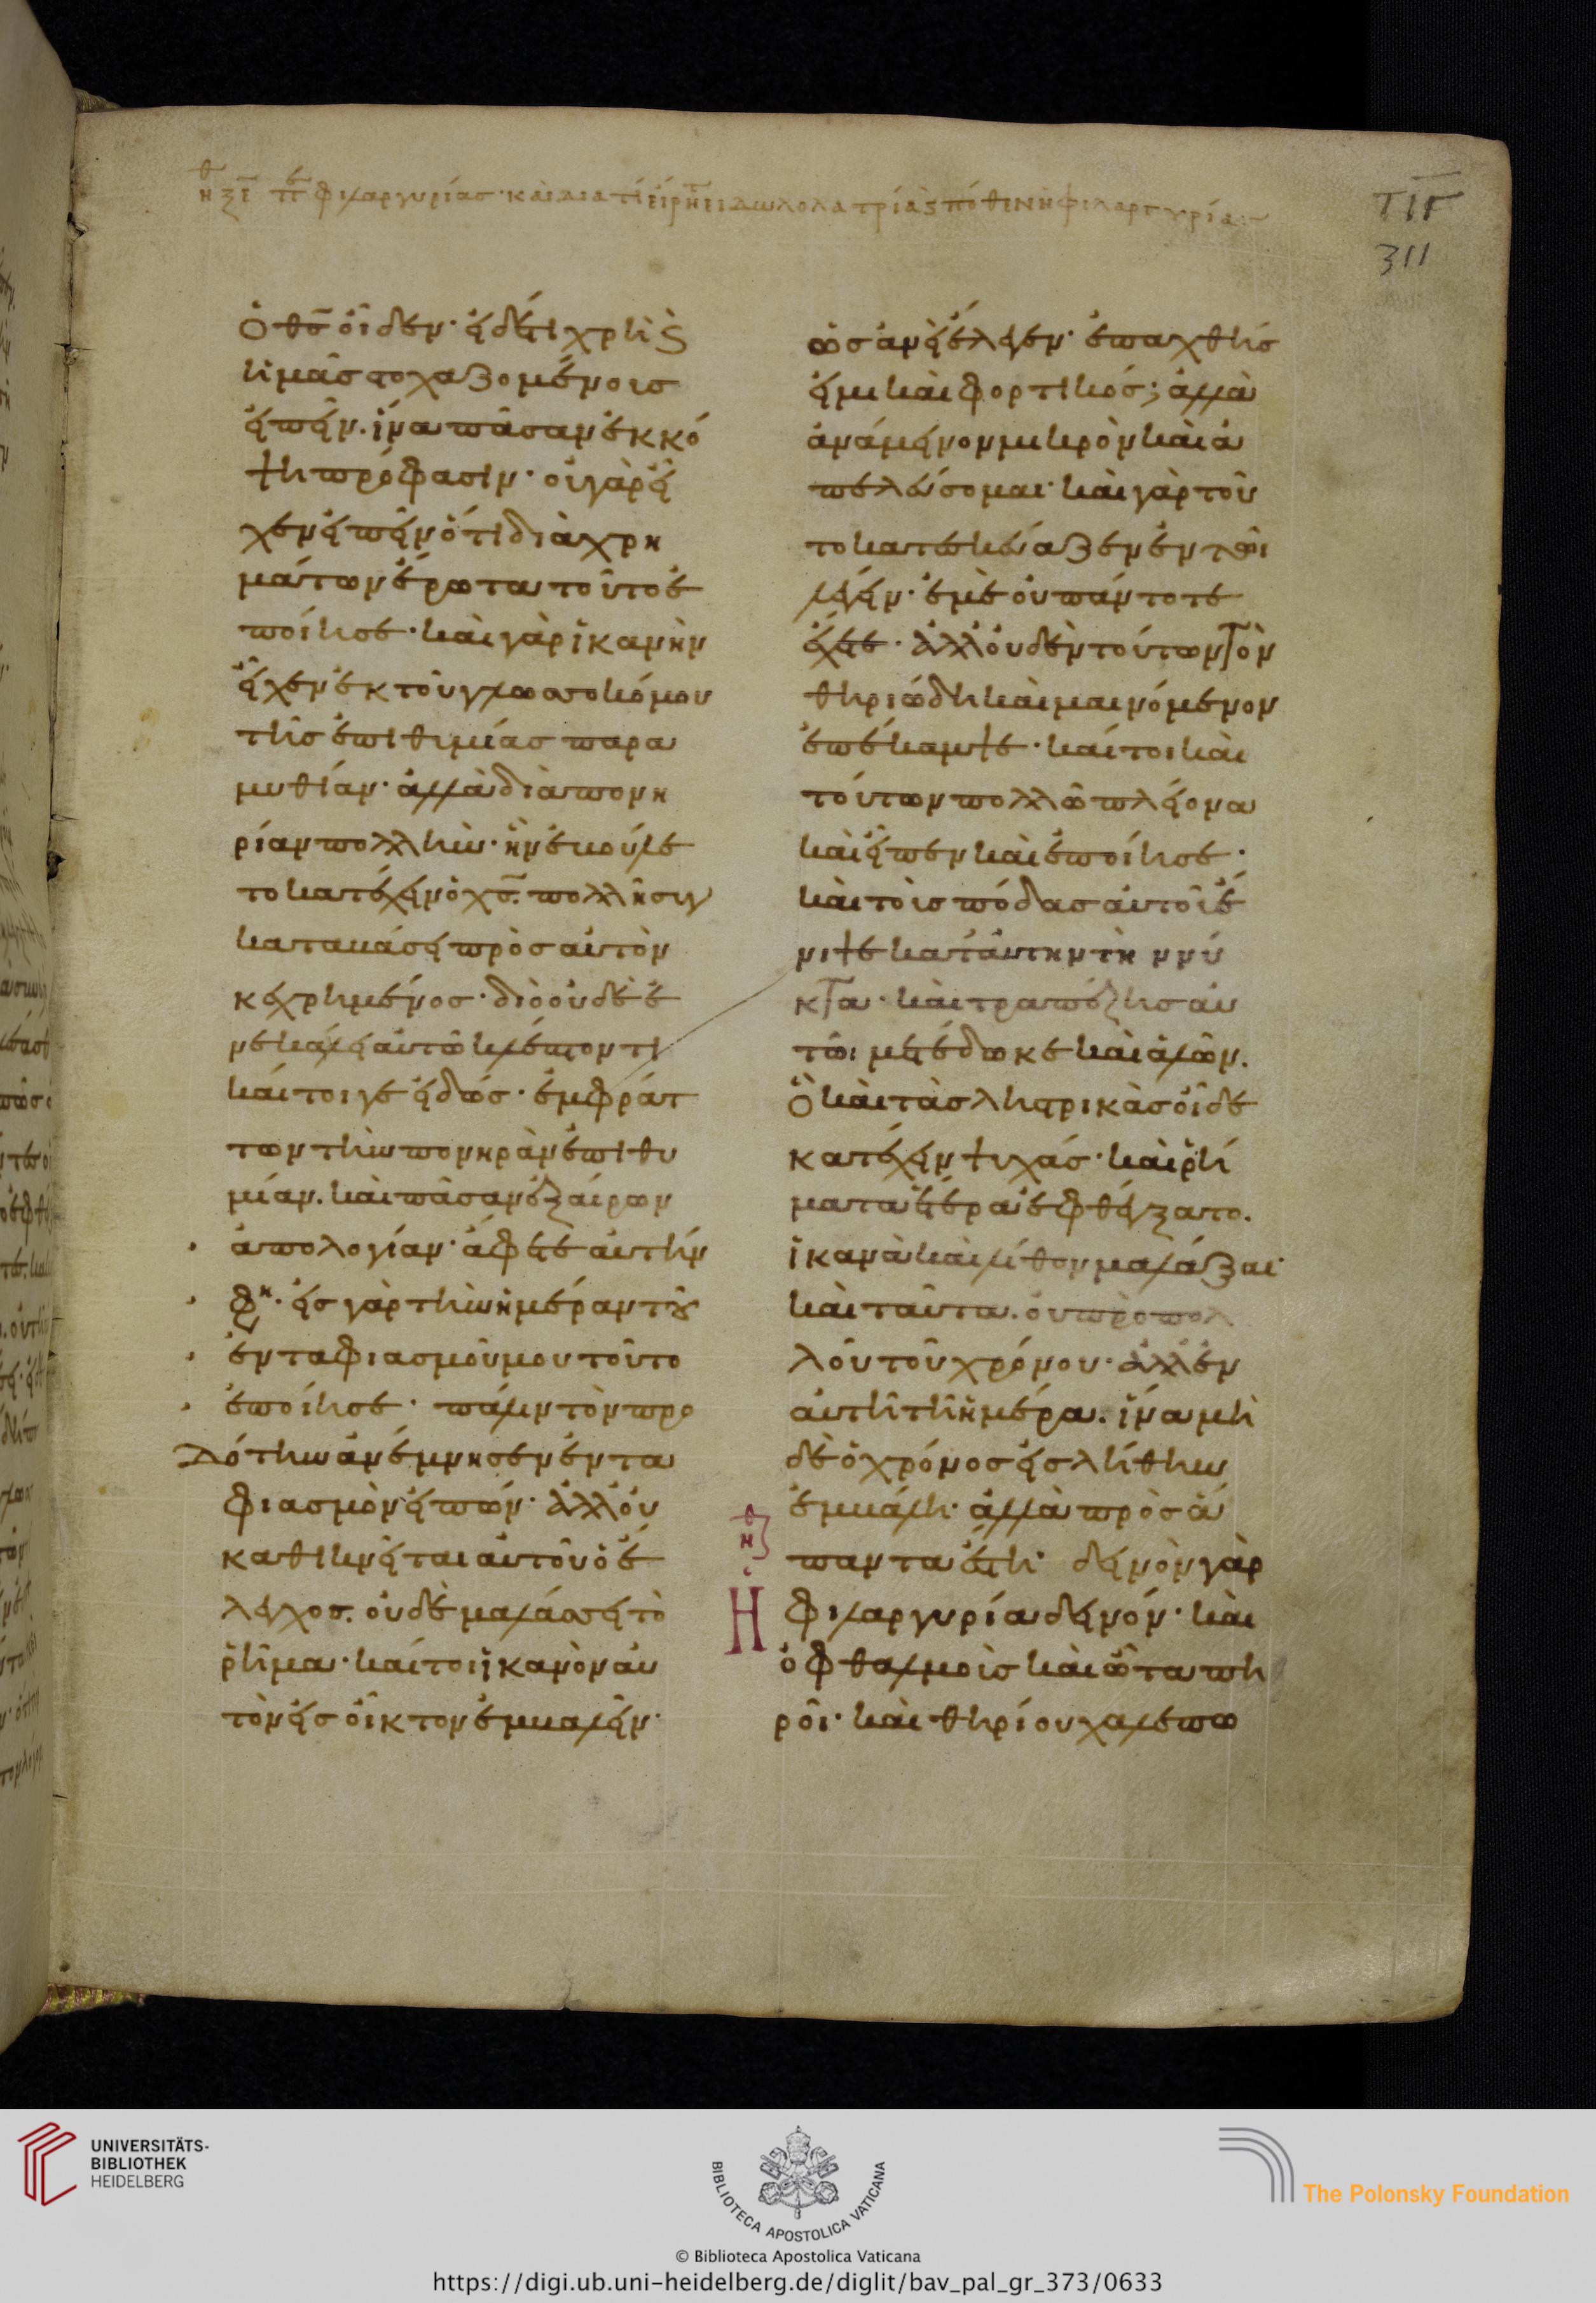 ηθ ξγ πε φιλαργυρίας· καὶ διατί εἴρητ εἰδωλολατρία ϛ πόθεν ἡ φιλαργυρία:
ΤΙΓ
311
ὁ θ̅ς̅ οἶδεν· εἰ δέ τι χρὴ ϛ
ἡμᾶς στοχαζομένοις
εἰπεῖν. ἵνα πᾶσαν ἐκκό
ψη πρόφασιν· οὐ γὰρ εἶ
χεν εἰπεῖν ὅτι διὰ χρη
μάτων ἔρωτα τοῦτο ἐ
ποίησε· καὶ γὰρ ἱκανὴν
εἶχεν ἐκ τοῦ γλωσσοκόμου
τῆς ἐπιθυμίας παρα
μυθίαν· ἀλλὰ διὰ πονη
ρίαν πολλὴν· ἣν ἐβούλε
το κατέχειν ὁ χ̅ς̅. πολλῆ συγ
καταβάσει πρὸς αὐτὸν
κεχρημένος· διὸ οὐδὲ ἐ
νεκάλει αὐτῶ κλέπτοντι
καίτοιγε εἰδώς· ἐμφράτ
των τὴν πονηρὰν ἐπιθυ
μίαν. καὶ πᾶσαν ἐξαίρων
ἀπολογίαν· ἄφετε αὐτήν
φη· εἰς γὰρ τὴν ἡμέραν τοῦ
ἐνταφιασμοῦ μου τοῦτο
ἐποίησε· πάλιν τὸν προ
δότην ἀνέμνησεν ἐντα
φιασμὸν εἰπών· ἀλλ' οὐ
καθικνεῖται αὐτοῦ ὁ ἔ
λεγχος. οὐδὲ μαλάσσει τὸ
ῥῆμα· καίτοι ἱκανὸν αὐ
τὸν εἰς οἶκτον ἐμβαλεῖν·
ὡσανεὶ ἔλεγεν· ἐπαχθής
εἰμι καὶ φορτικός; ἀλλὰ
ἀνάμεινον μικρὸν καὶ ἀ
πελεύσομαι· καὶ γὰρ τοῦ
το κατεσκεύαζεν ἐν τῶι
λέγειν· ἐμὲ οὐ πάντοτε
ἔχετε· ἀλλ' οὐδὲν τούτων τὸν
θηριώδη καὶ μαινόμενον
ἐπέκαμψε· καίτοι καὶ
τούτων πολλῶ πλείονα
καὶ εἶπεν καὶ ἐποίησε·
καὶ τοὺς πόδας αὐτοῦ ἔ
νιψε κατ' αὐτὴν τὴν νύ
κτα· καὶ τραπέζης αὐ
τῶι μετέδωκε καὶ ἁλῶν.
ὃ καὶ τὰς ληστρικὰς οἶδε
κατέχειν ψυχάς· καὶ ῥή
ματα ἕτερα ἐφθέγξατο.
ἱκανὰ καὶ λίθον μαλάξαι·
καὶ ταῦτα. οὐ πρὸ πολ
λοῦ τοῦ χρόνου· ἀλλ' ἐν
αὐτῆ τῆ ἡμέρα. ἵνα μη
δὲ ὁ χρόνος εἰς λήθην
ἐμβάλη· ἀλλὰ πρὸς ἅ
παντα ἔστη· δεινὸν γὰρ
ηθ
Ἡ φιλαργυρία δεινόν· καὶ
ὀφθαλμοὺς καὶ ὦτα πη
ροῖ· καὶ θηρίου χαλεπω
UNIVERSITÄTS-
BIBLIOTHEK
HEIDELBERG
BIBLIOTECA APOSTOLICA VATICANA
The Polonsky Foundation
© Biblioteca Apostolica Vaticana
https://digi.ub.uni-heidelberg.de/diglit/bav_pal_gr_373/0633